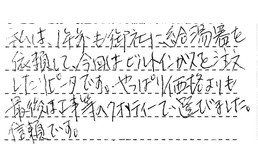 私は、1年半も御社に給湯器を
依頼して、今回はビルトインガスを注文
したリピータです。やっぱり価格よりも
最後は工事等のクオリティーで選びました。
信頼です。